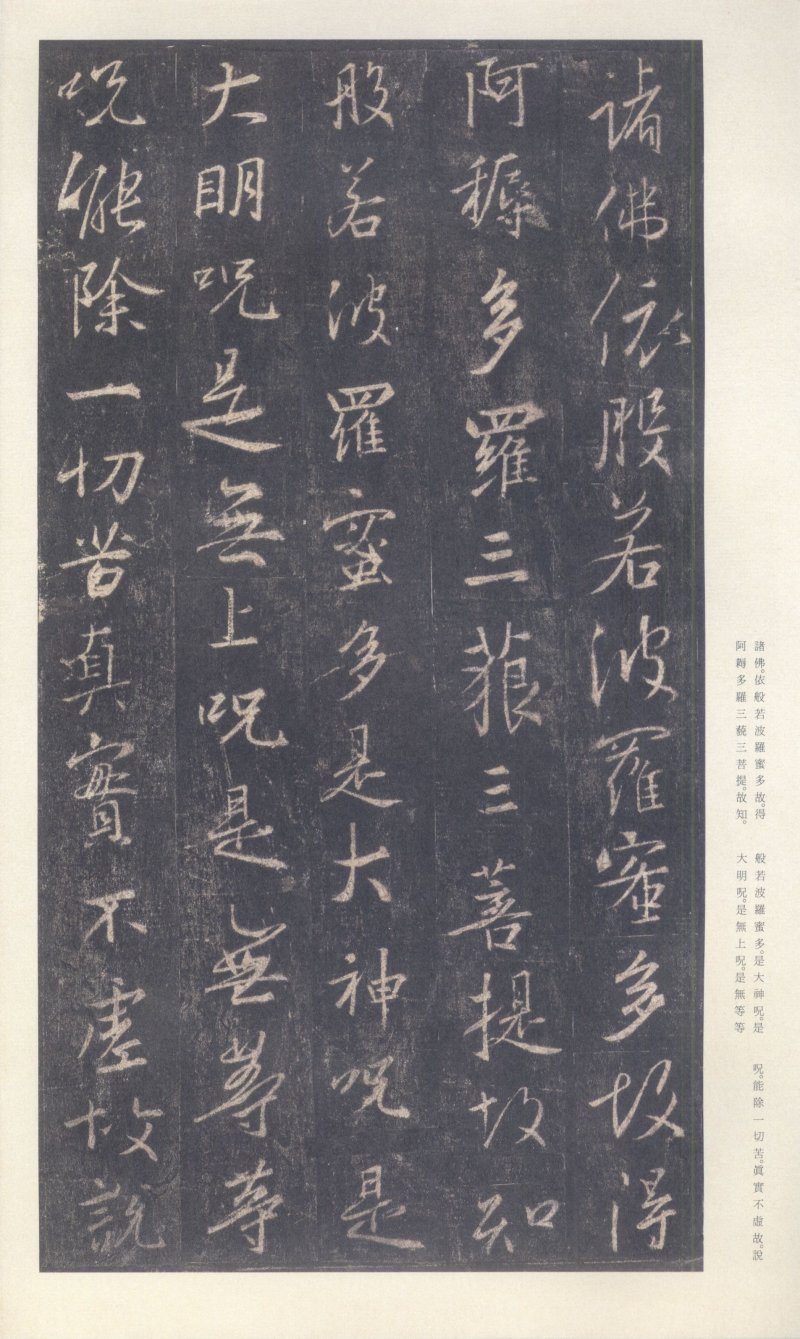 諸佛依般若波羅蜜多故得
阿耨多羅三藐三菩提故知
般若波羅蜜多是大神呪是
大明呪是無上呪是無等等
呪能除一切苦真實不虛故說
諸佛。依般若波羅蜜多故。得
阿耨多羅三藐三菩提。故知。
般若波羅蜜多。是大神呪。是
大明呪。是無上呪。是無等等
呪。能除一切苦。眞實不虛故。說